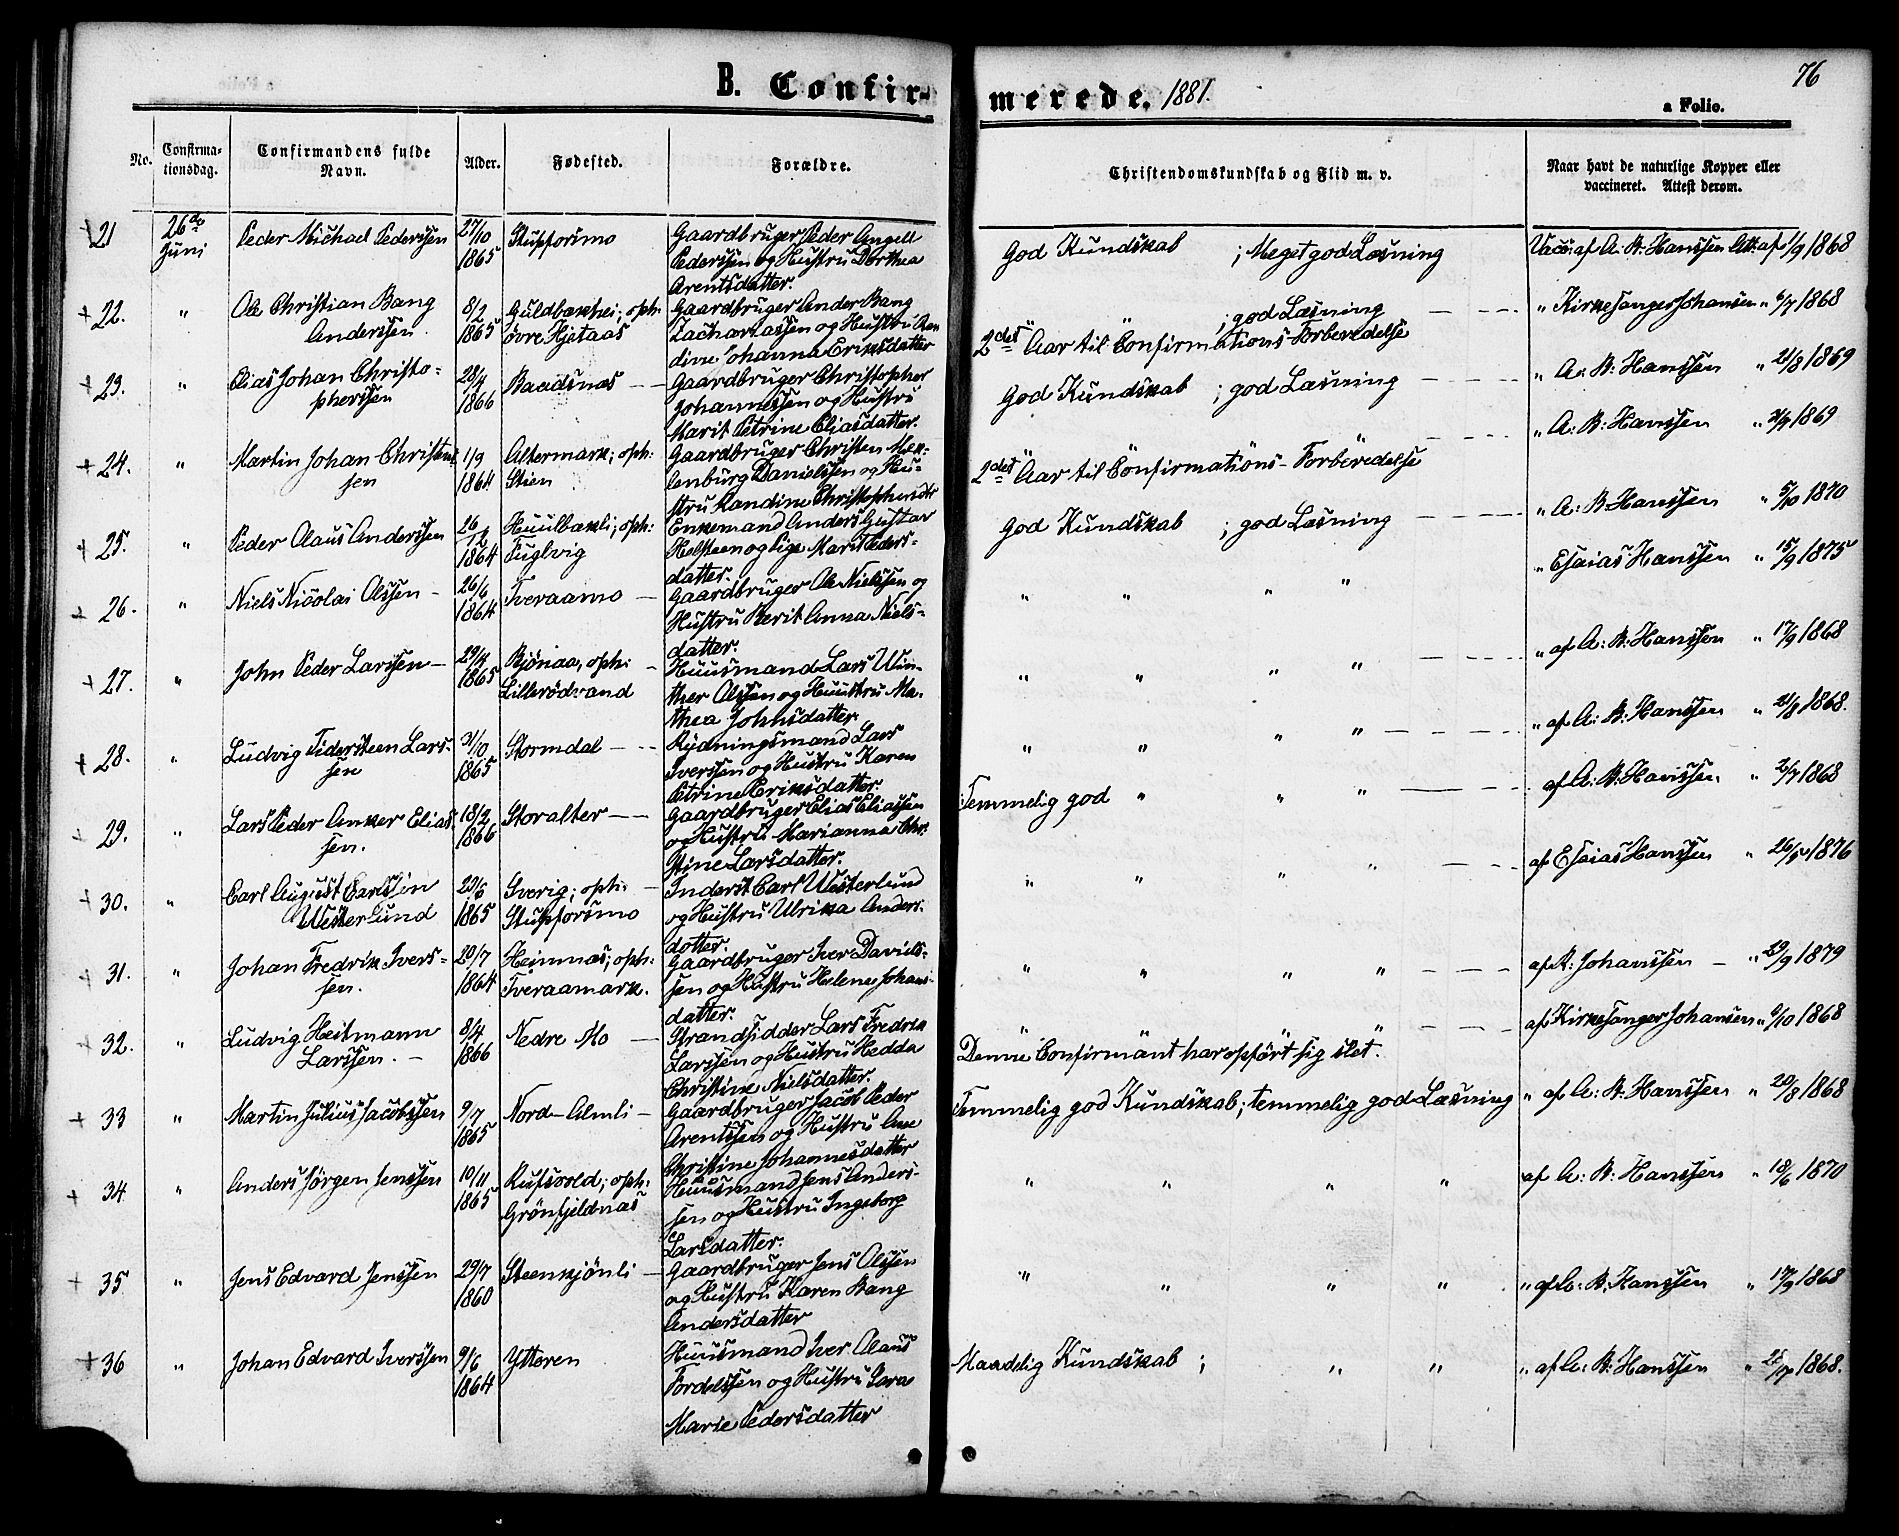 76
B. Confir-
merede. 1881.
a Folio.
No.
Confirma-
tionsdag.
Confirmandens fulde
Navn.
Alder.
Fødested.
Forældre.
Christendomskundskab og Flid m. v.
Naar havt de naturlige Kopper eller
vaccineret. Attest derom.
+ 21
26de
Juni
Peder Michael Pederssen
27/10
1865
Stupforsmo
Gaardbruger Peder Angell
Pederssen og Hustru Dorthea
Arentsdatter.
God Kundskab ; Meget god Læsning
Vacc: af A. B: Hanssen Att: af 1/9 1868
+ 22.
"
Ole Christian Bang
Anderssen
8/2
1865
Guldbakhei; oph:
övre Hjetaas
Gaardbruger Ander Bang
Zachariassen og Hustru Ran
dine Johanna Eriksdatter
" " ; god Læsning
2det Aar til Confirmations-Forberedelse
" Kirkesanger Johansen " 6/7 1868
+ 23.
"
Elias Johan Christo-
pherssen
28/4
1866
Baadsnæs
Gaardbruger Christopher
Johannessen og Hustru
Marit Petrine Eliasdatter.
God Kundskab ; god Læsning
" A: B: Hanssen " 21/8 1869
+ 24.
"
Martin Johan Christens
sen
1/9
1864
Altermark; oph:
Stien
Gaardbruger Christen Mek-
lenburg Danielssen og Hu-
stru Randine Christophersdtr
" " "
2det Aar til Confirmations-Forberedelse
" A: B: Hanssen " 21/9 1869
+ 25.
"
Peder Olaus Anderssen
26/12
1864
Huulbakli; oph:
Fuglvig
Enkemand Anders Gustav
Holsteen og Pige Marit Peders-
datter.
God Kundskab ; god Læsning
" A: B Hanssen " 5/10 1870
+ 26.
"
Niels Nicolai Olssen -
26/6
1864
Tveraamo
Gaardbruger Ole Nielssen og
Hustru Berit Anna Niels-
datter.
" " " "
" Esaias Hanssen " 15/9 1875
+ 27.
"
John Peder Larssen -
29/4
1865
Bjönaa, oph:
Lillerödvand
Huusmand Lars Win-
ther Olssen og Huustru Ma-
thea Johnsdatter.
" " " "
" af A: B: Hanssen " 17/9 1868
+ 28.
"
Ludvig Tidersteen Lars-
sen
31/10
1865
Stormdal
Rydningsmand Lars
Iverssen og Hustru Karen
Petrine Eriksdatter.
" " " "
" af A: B: Hanssen " 21/8 1868.
+ 29.
"
Lars Peder Anker Elias-
sen.
18/2
1866
Storalter
Gaardbruger Elias Eliassen
og Hustru Marianna Chri-
stine Larsdatter.
Temmelig god " " "
af A: B: Hanssen " 2/7 1868
+ 30.
"
Carl August Carlssen
Westerlund
23/6
1865
Sverig; oph:
Stupforsmo
Inderst Carl Westerlund
og Hustru Ulrika Anders-
dotter.
" " " "
af Esaias Hanssen " 26/5 1876
+ 31.
"
Johan Fredrik Ivers-
sen.
20/7
1864
Heimnæs; oph:
Tveraamark.
Gaardbruger Iver Davids-
sen og Hustru Helene Johans-
datter.
" " " "
af R. Johanssen - " 29/9 1879
+ 32.
"
Ludvig Heitmann
Larssen. -
8/4
1866
Nedre Mo
Strandsidder Lars Fredrik
Larssen og Hustru Hedda
Christine Nielsdatter.
" " " "
Denne Confirmant har opført sig slet.
af Kirkesanger Johansen " 6/10 1868
+ 33
"
Martin Julius Jacobssen
9/7
1865
Nord-Almli -
Gaardbruger Jacob Peder
Arentssen og Hustru Ane
Christine Johannesdatter
Temmelig god Kundskab; temmelig god Læsning
" af A: B: Hanssen " 20/8 1868
+ 34
"
Anders Jörgen Jenssen
10/11
1865
Rufsvold; oph:
Grönfjeldnæs
Huusmand Jens Anders-
sen og Hustru Ingeborg
Larsdatter.
" " " "
af A: B: Hanssen " 18/6 1870
+ 35
"
Jens Edvard Jenssen
29/7
1860
Steenkjönli -
Gaardbruger Jens Olssen
og Hustru Karen Bang
Andersdatter
" " " "
" af A: B: Hanssen " 17/9 1868
+ 36
"
Johan Edvard Iverssen
9/6
1864
Ytteren
Huusmand Iver Olaus
Tordelssen og Hustru Sara
Marie Pedersdatter
Maadelig Kundskab ; " "
" af A: B: Hanssen " 1868.